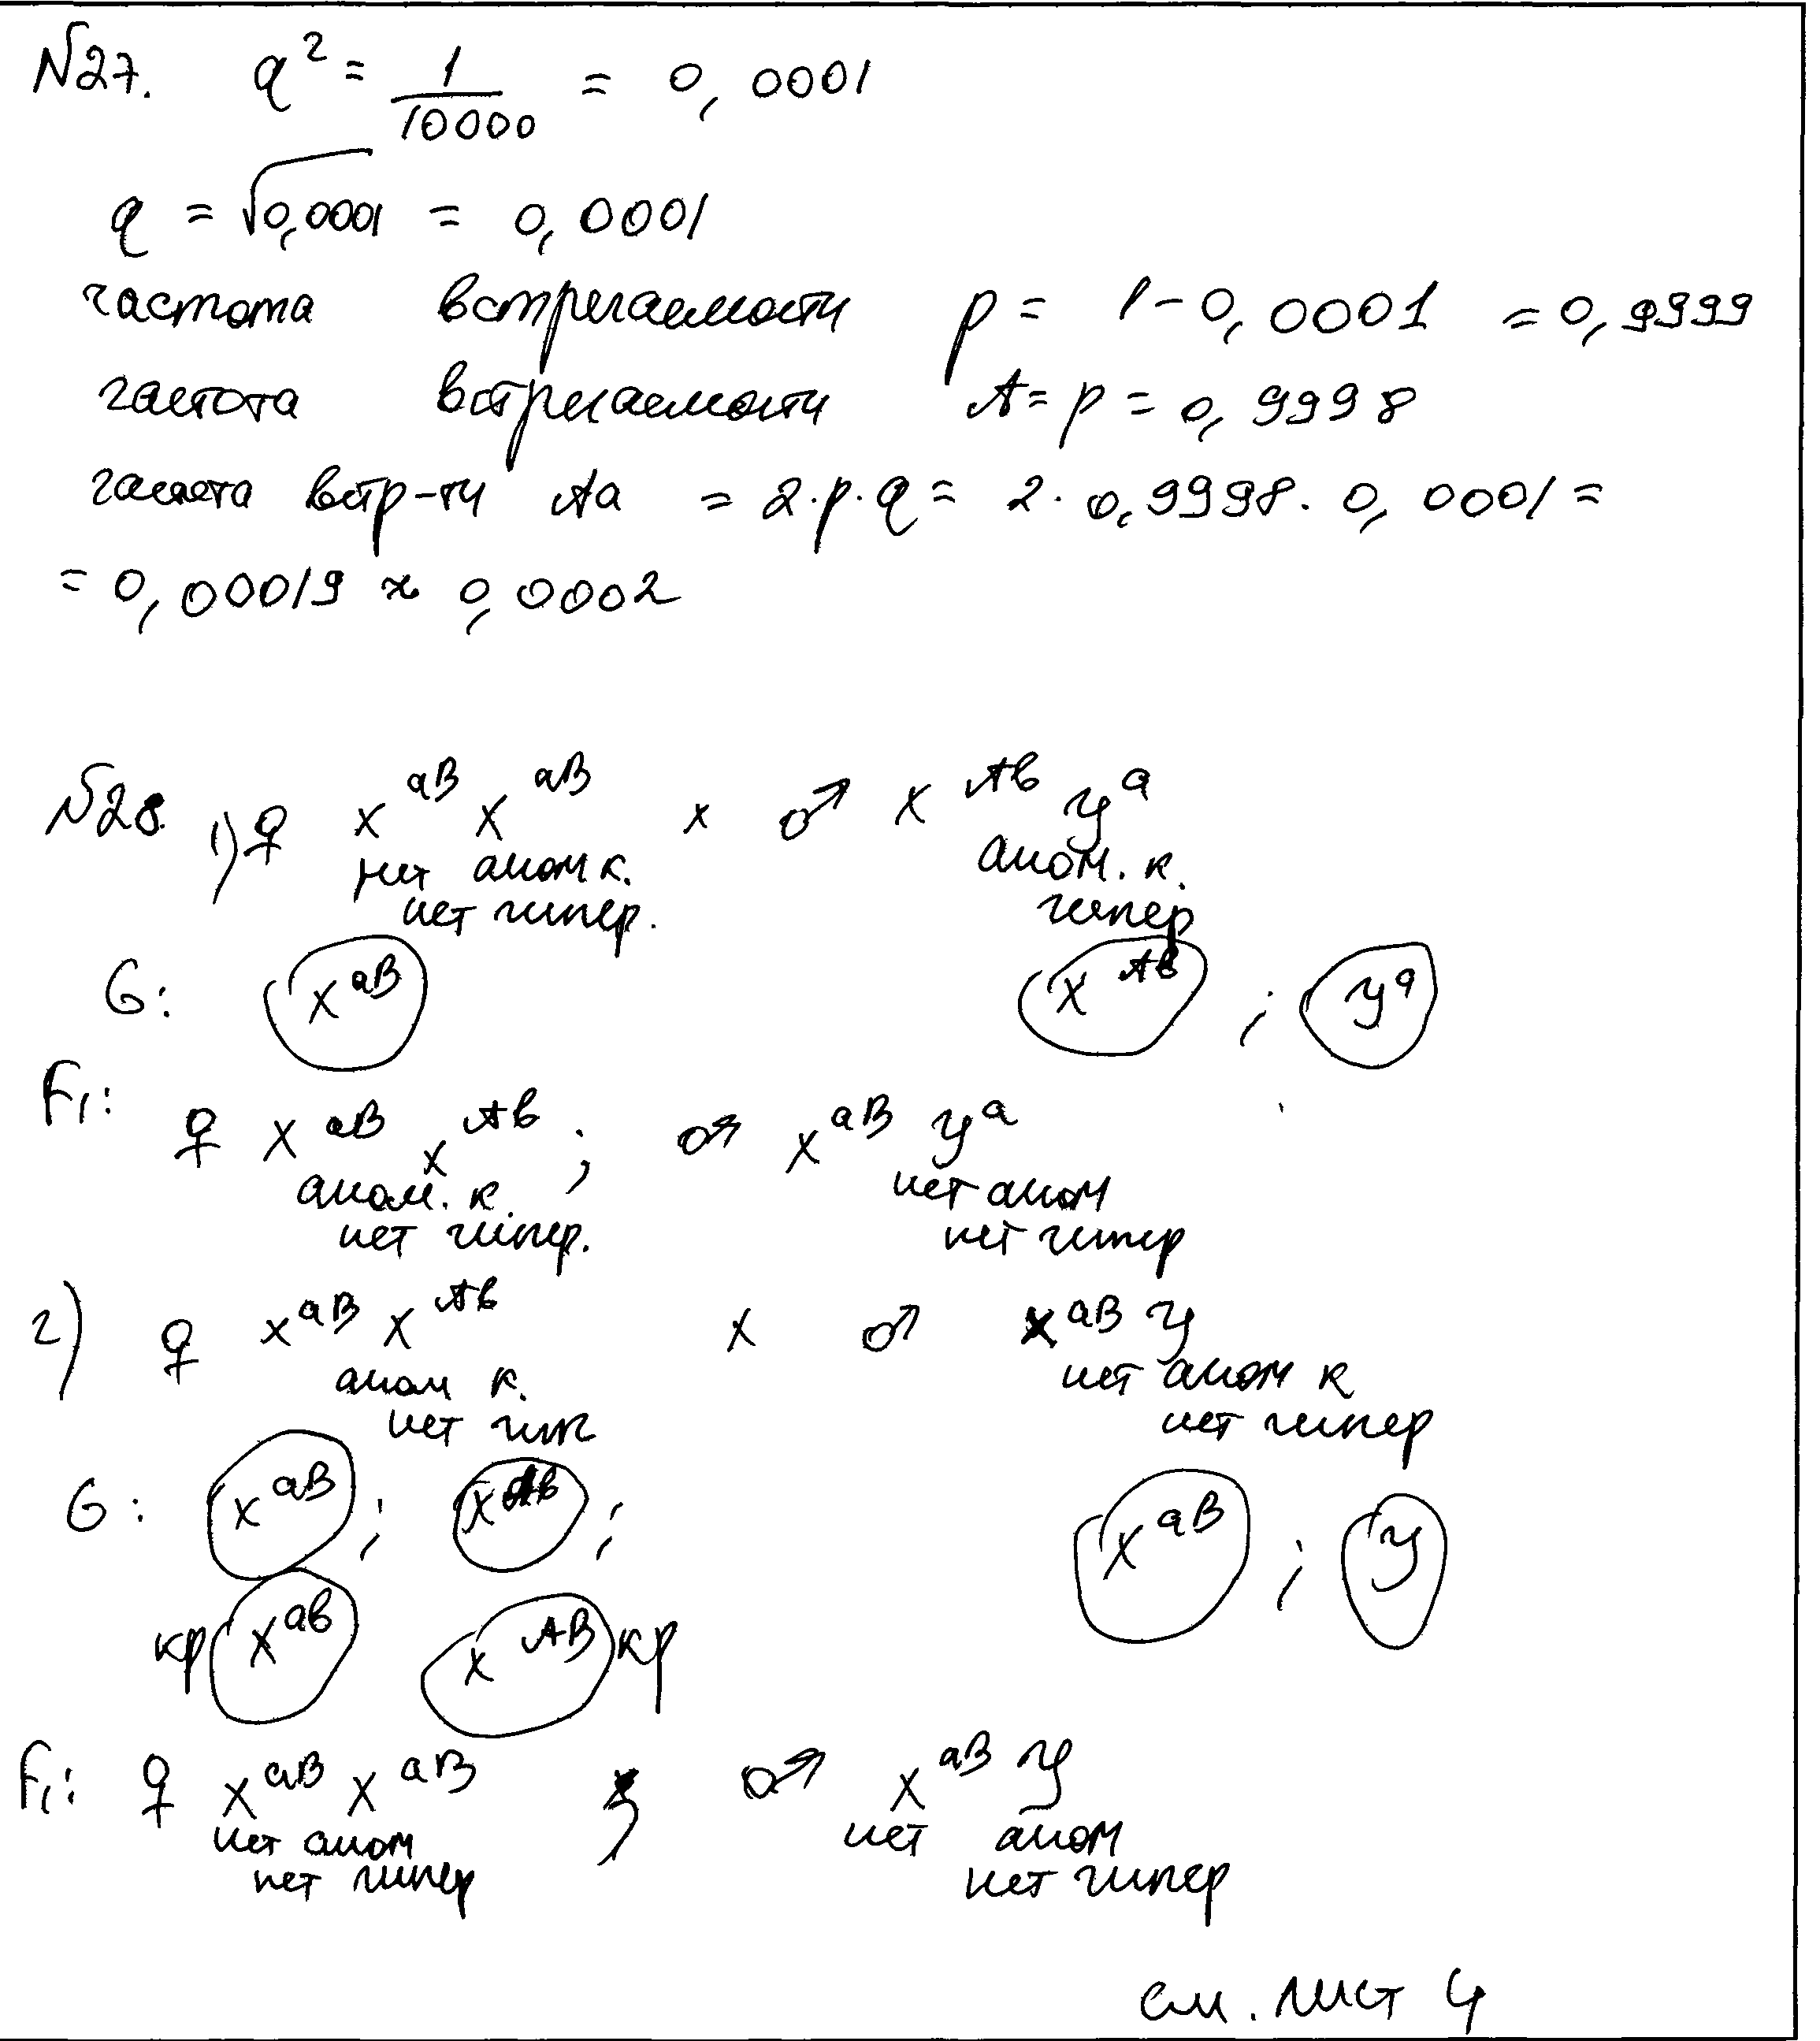 N27. q² = 1/10000 = 0,0001
q = √0,0001 = 0,0001
частота встречаемости p = 1 - 0,0001 = 0,9999
частота встречаемости A = p = 0,9998
частота встр-ти Aa = 2·p·q = 2·0,9998·0,0001 =
= 0,00019 ≈ 0,0002
N28. 1) ♀ X^aB X^aB x ♂ X^Ab y^a
нет аном к. аном. к.
нет гипер. гипер
G: X^aB X^Ab ; y^a
F1:
♀ X^aB X^Ab ; ♂ X^aB y^a
аном. к. нет аном
нет гипер. нет гипер
2) ♀ X^aB X^Ab x ♂ X^aB y
аном к. нет аном к
нет гип нет гипер
G: X^aB ; X^Ab ; X^aB ; y
кр X^ab X^AB кр
F1: ♀ X^aB X^aB ; ♂ X^aB y
нет аном нет аном
нет гипер нет гипер
см. лист 4